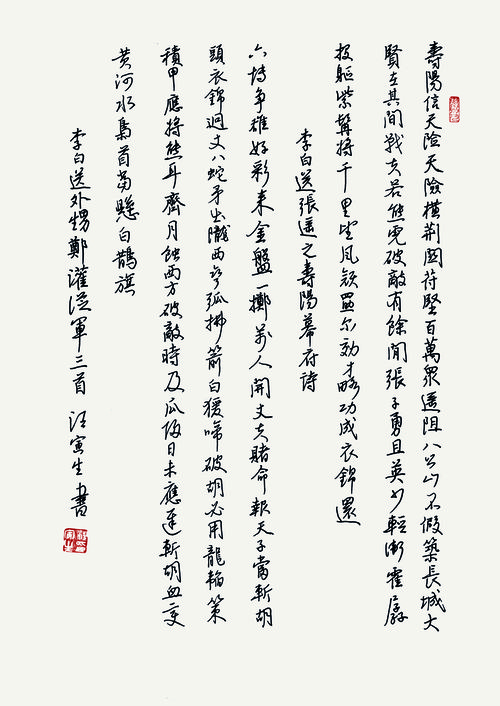 壽陽信天險天險橫荆關苻堅百萬衆遥阻八公山不假築長城大
賢在其間戰夫若熊虎破敵有餘閒張子勇且英少輕衛霍孱
投軀紫髯將千里望風顏勗尔効才略功成衣錦還
李白送張遥之壽陽幕府詩
六博争雄好彩来金盤一擲萬人開丈夫賭命報天子當斬胡
頭衣錦迴丈八蛇矛出隴西弯弧拂箭白猨啼破胡必用龍韜策
積甲應將熊耳齊月蝕西方破敵時及瓜歸日未應遲斬胡血變
黄河水梟首當懸白鵲旗
李白送外甥鄭灌從軍三首 汪寅生書